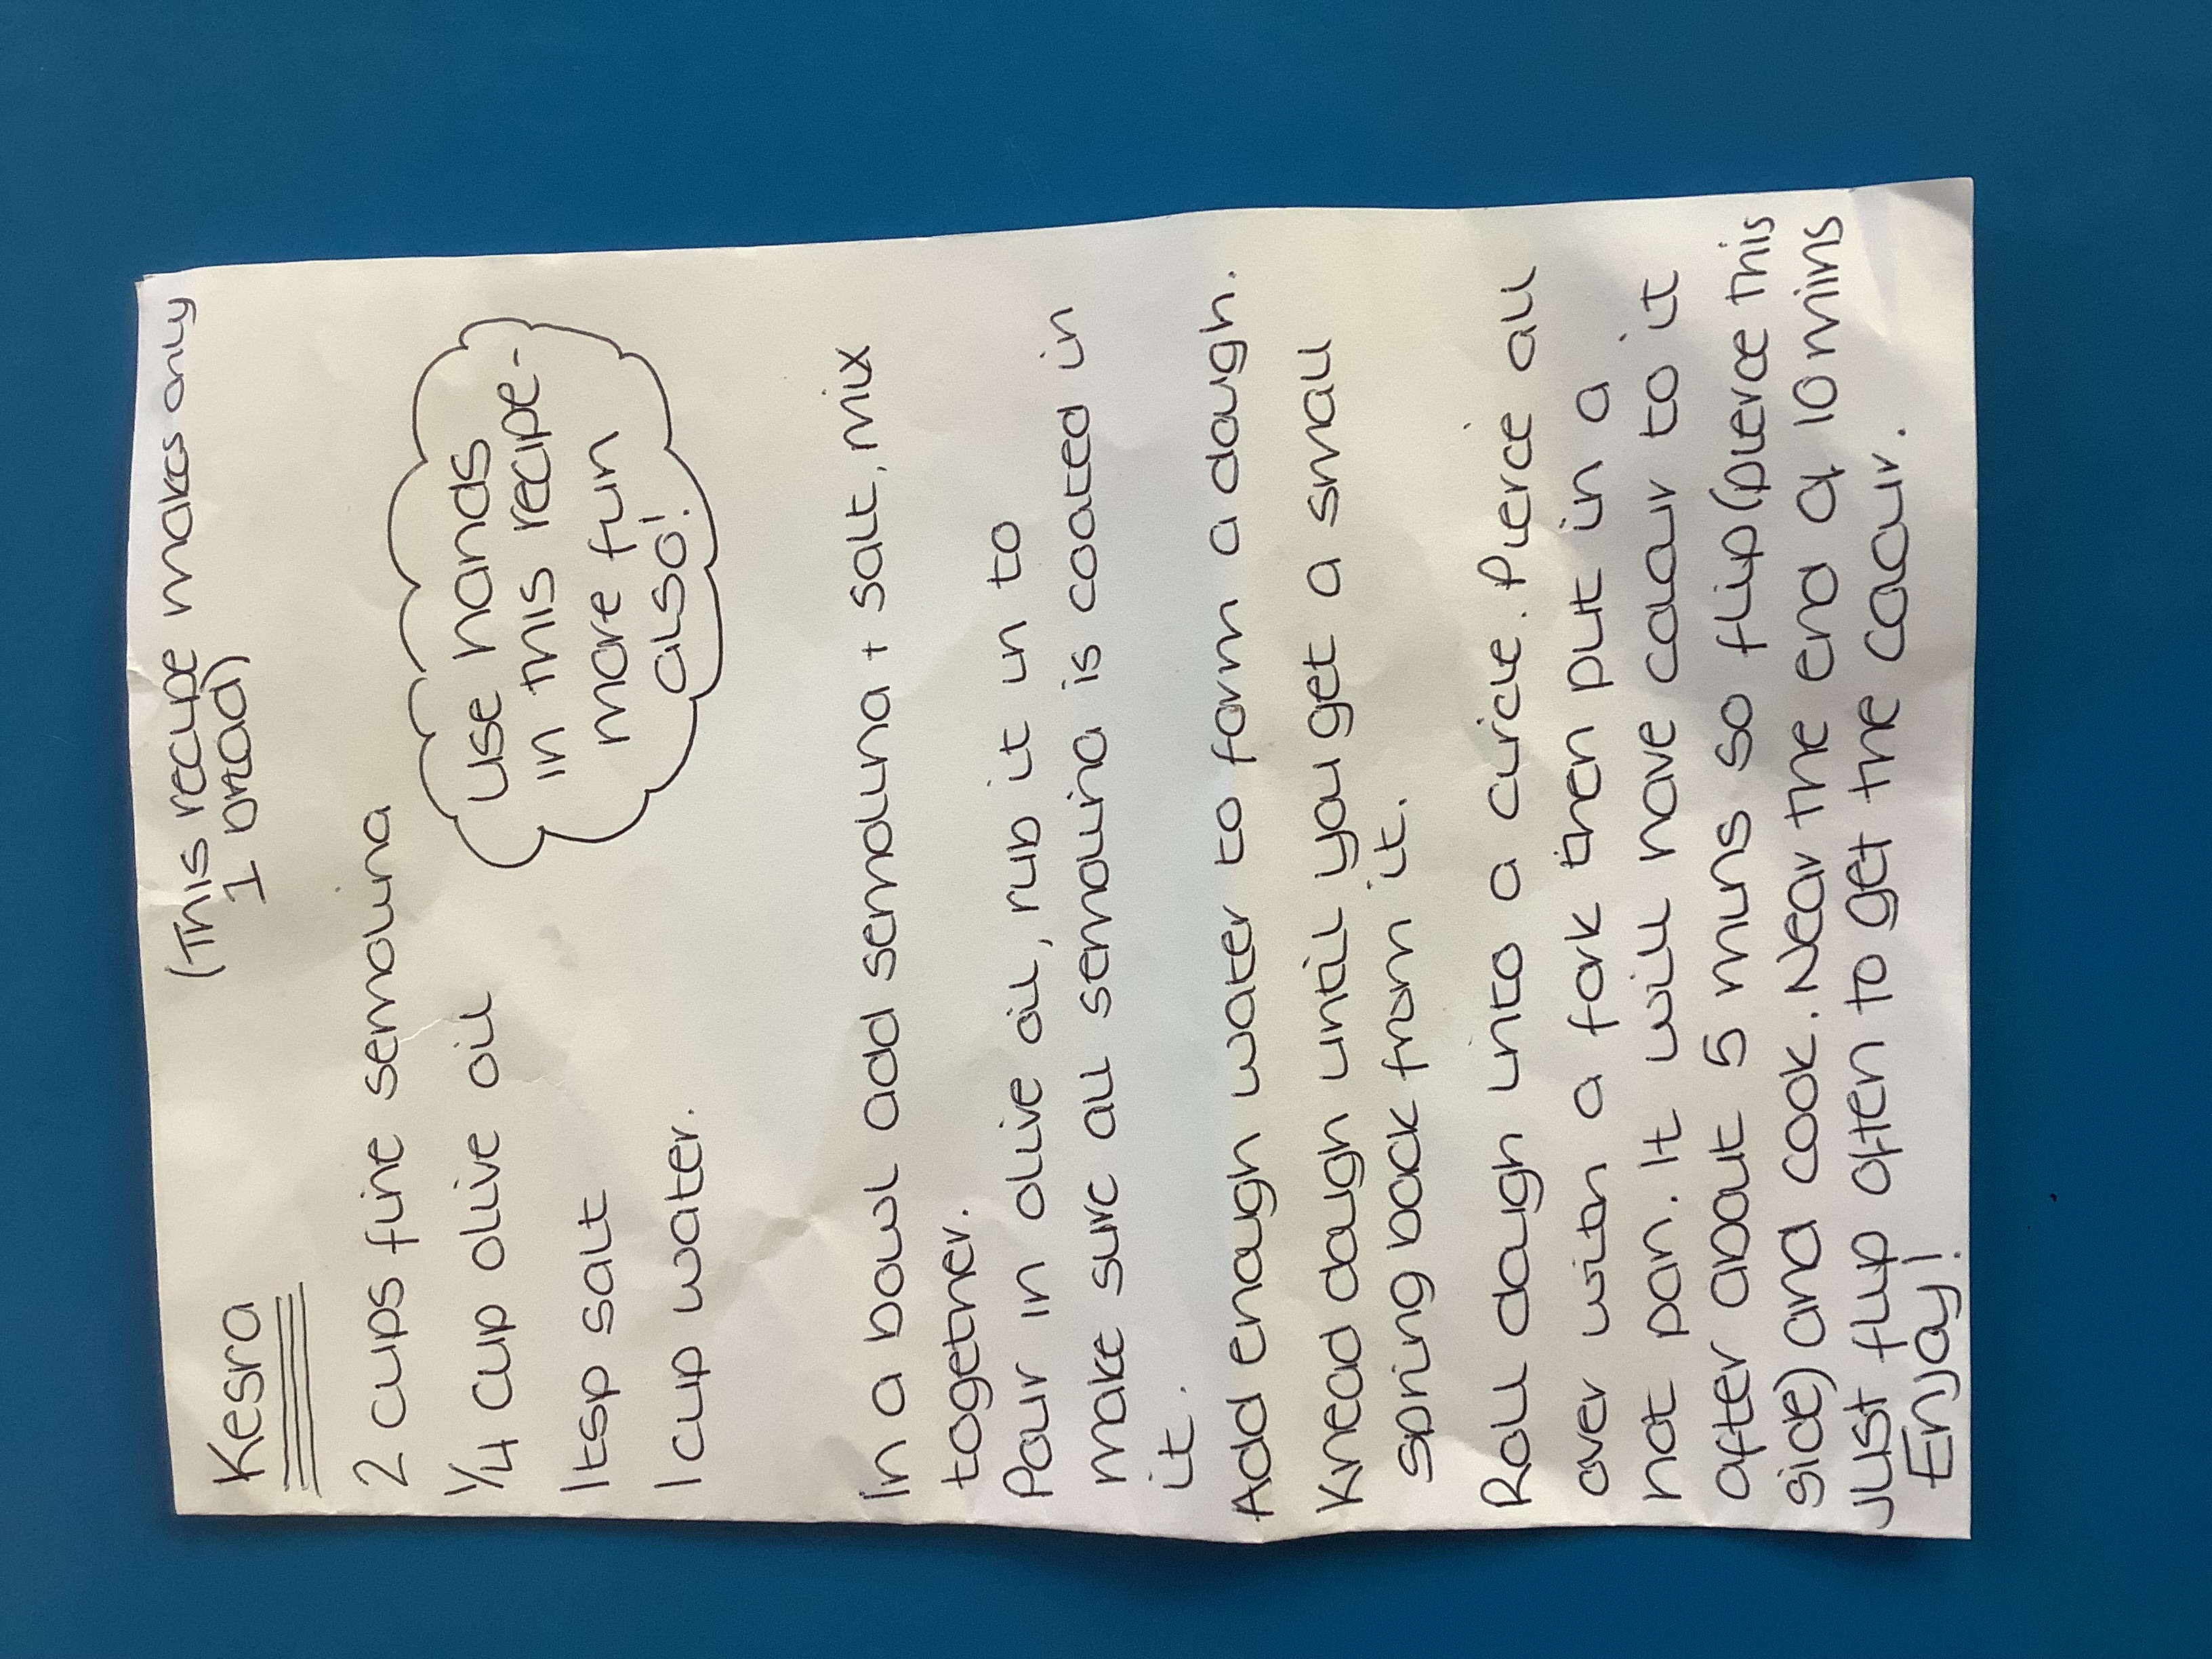 Kesra
(This recipe makes only
1 bread)
2 cups fine semolina
1/4 cup olive oil
1tsp salt
1 cup water.
Use hands
in this recipe-
more fun
also!
In a bowl add semolina + salt, mix
together.
Pour in olive oil, rub it in to
make sure all semolina is coated in
it.
Add enough water to form a dough.
Knead dough until you get a small
spring back from it.
Roll dough into a circle. Pierce all
over with a fork then put in a
hot pan. It will have colour to it
after about 5 mins so flip (pierce this
side) and cook. Near the end of 10 mins
Just flip often to get the colour.
Enjoy!